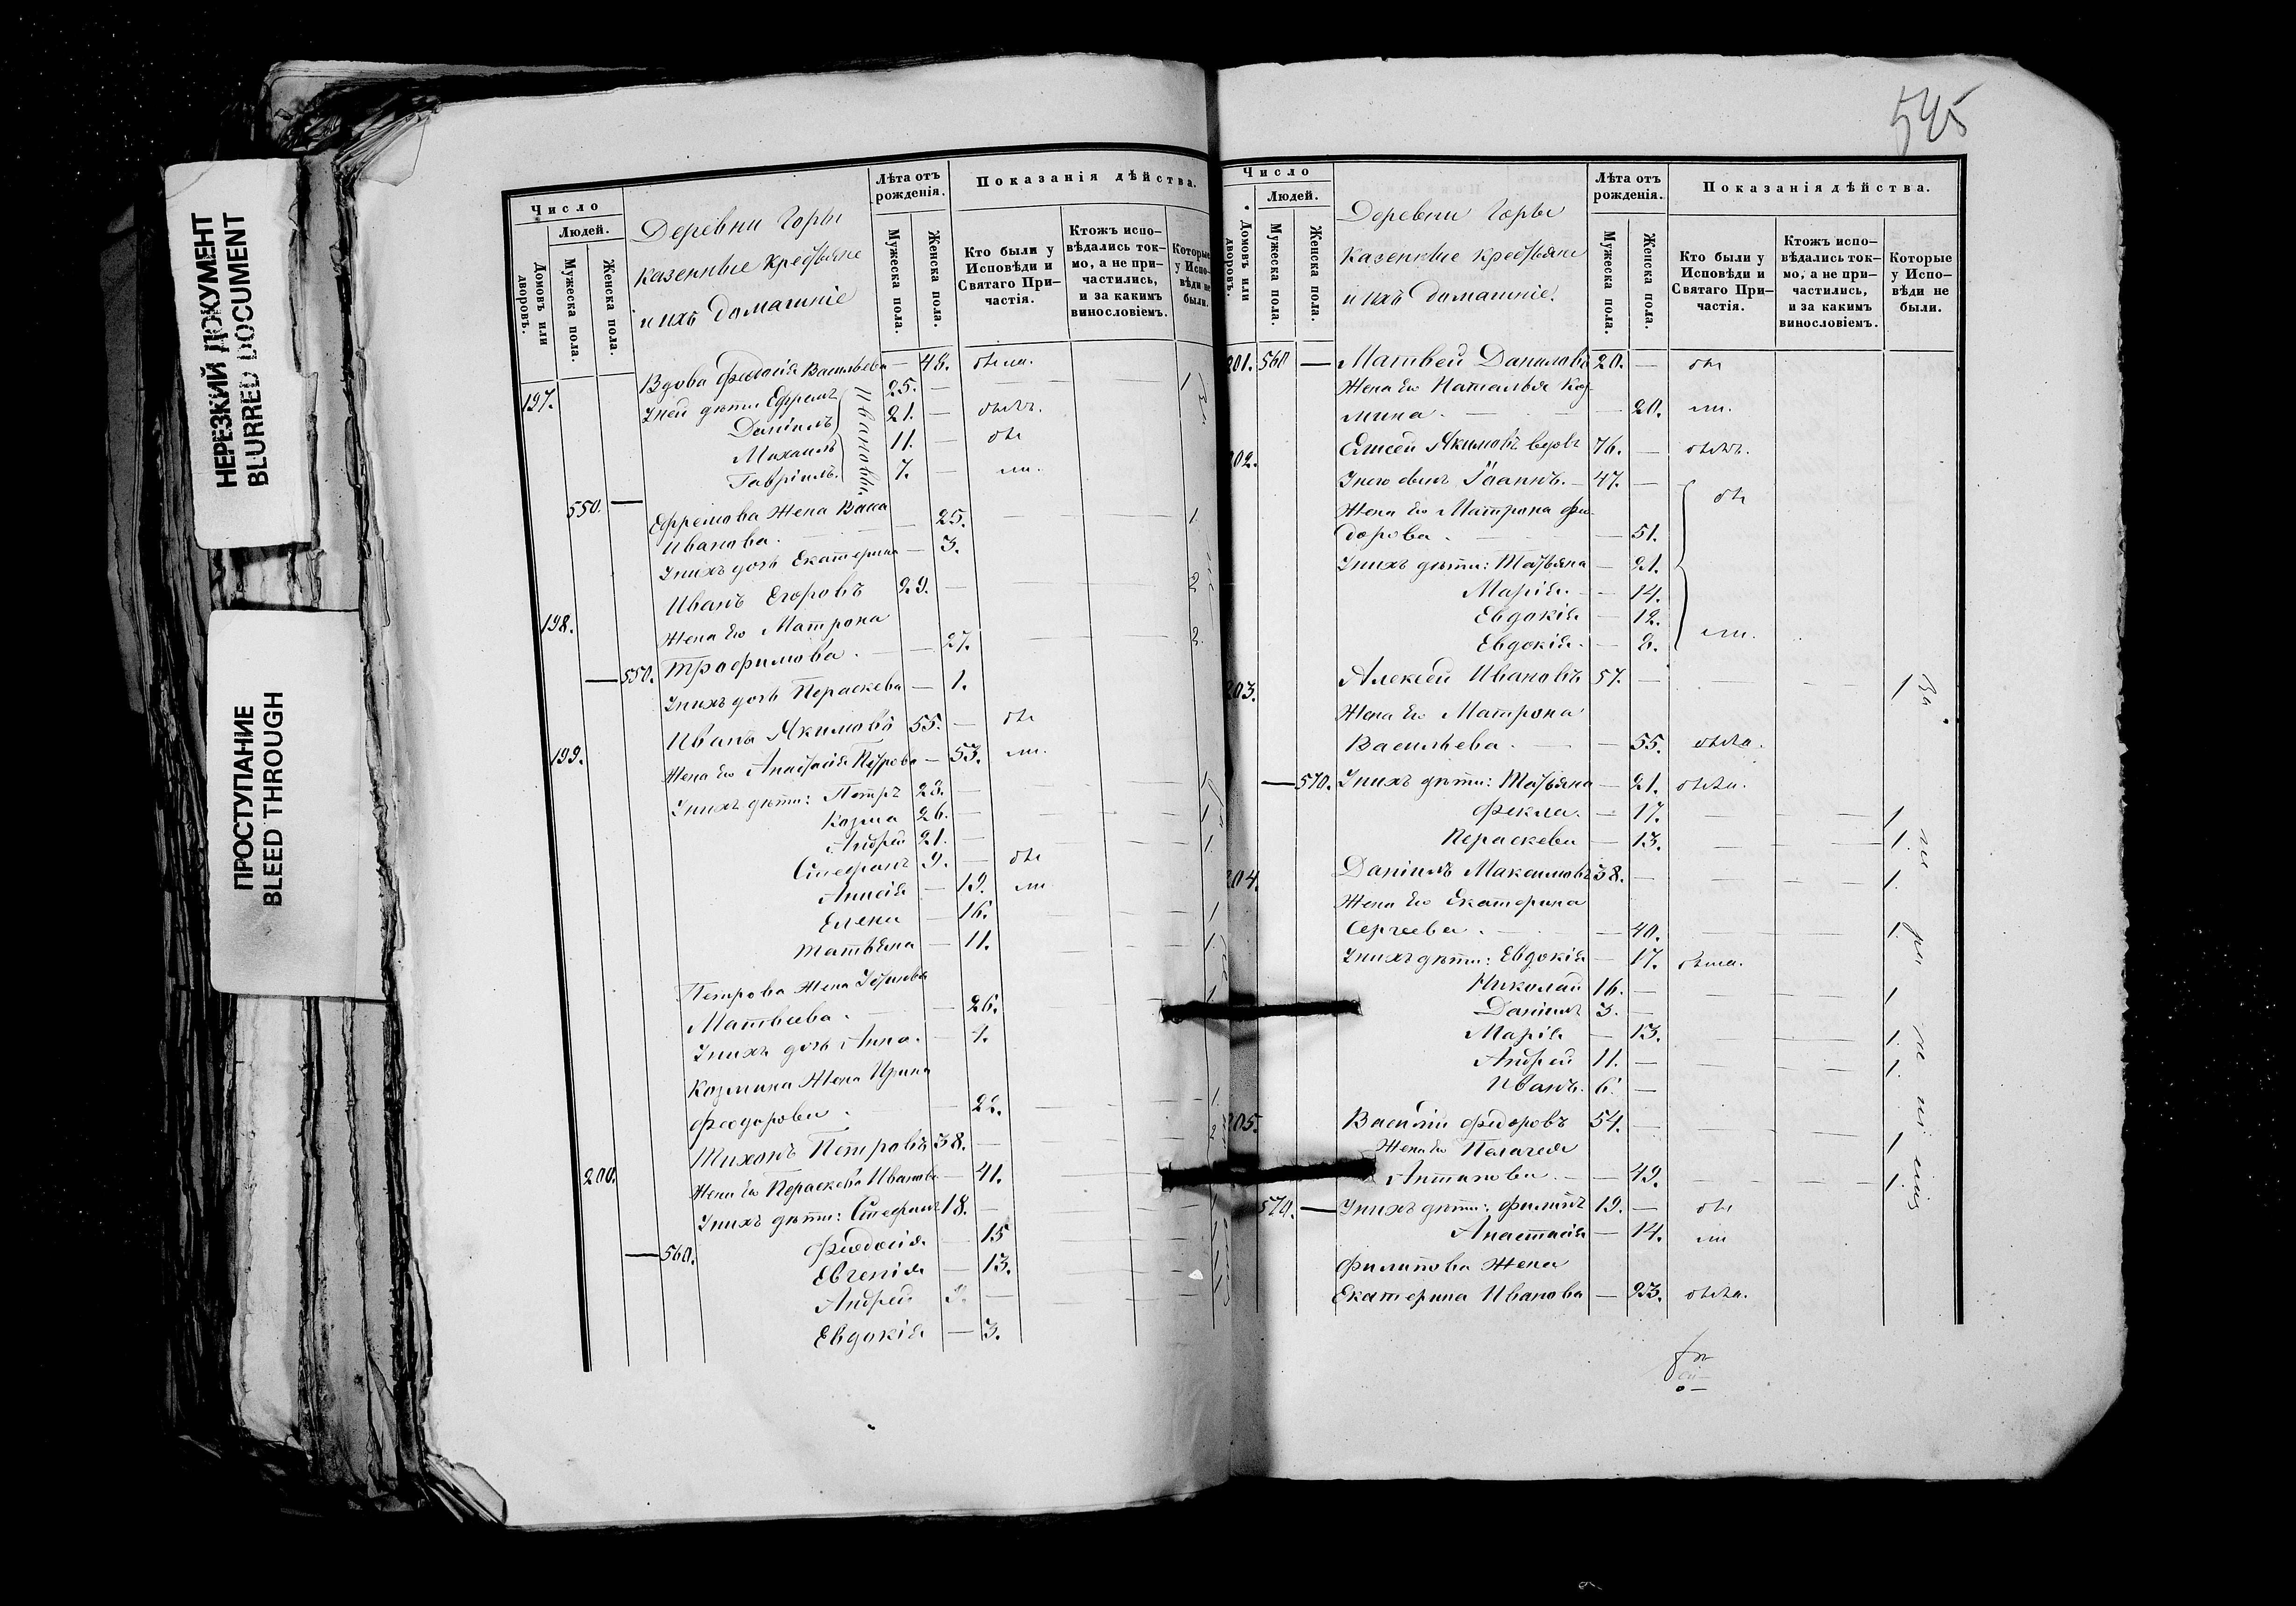 НЕРЕЗКИЙ ДОКУМЕНТ
BLURRED DOCUMENT
ПРОСТУПАНИЕ
BLEED THROUGH
Число
Людей.
Домовъ или дворовъ.
Мужеска пола.
Женска пола.
Деревни Горы
казенные крестьяне
и ихъ домашніе
Лѣта отъ рожденія.
Мужеска пола.
Женска пола.
Показанія дѣйства.
Кто были у Исповѣди и Святаго Причастія.
Ктожъ исповѣдались токмо, а не причастились, и за какимъ винословіемъ.
Которые у Исповѣди не были.
197. Вдова Феодосія Васильева — 48.
У ней дѣти Ефремъ 25. — 1
Даніилъ 21. —
Михаилъ 11. —
Гавріилъ 7. —
Ивановы.
550. —
Ефремова жена Васса
Иванова. — 25. 1.
У нихъ дочь Екатерина — 3.
198. Иванъ Егоровъ 29. — 2
Жена его Матрона
— 550. Трофимова. — 27. 2.
У нихъ дочь Пераскева — 1.
199. Иванъ Якимовъ 55. —
Жена его Анастасія Петрова — 53.
У нихъ дѣти: Петръ 28. — 1
Козма 26. — 1
Андрей 21. — 1.
Стефанъ 9. —
Анисія — 19.
Елена — 16. 1
Татьяна — 11. 1
Петрова жена Устинья
Матвѣева. — 26. 1
У нихъ дочь Анна. — 1.
Козмина жена Ирина
Феодорова. — 22. 1.
200. Тихонъ Петровъ 38. — 2
Жена его Пераскева Иванова — 41.
У нихъ дѣти: Стефанъ 18. — 1
— 560. Феодосія — 15 1
Евгенія — 13. 1
Андрей 9. — 1
Евдокія — 3.
545
Число
Людей.
Домовъ или дворовъ.
Мужеска пола.
Женска пола.
Деревни Горы
казенные крестьяне
и ихъ домашніе.
Лѣта отъ рожденія.
Мужеска пола.
Женска пола.
Показанія дѣйства.
Кто были у Исповѣди и Святаго Причастія.
Ктожъ исповѣдались токмо, а не причастились, и за какимъ винословіемъ.
Которые у Исповѣди не были.
201. 560 — Матвей Даниловъ 20. —
Жена его Наталья Коз
мина. — 20.
202. Елисей Якимовъ вдовъ 76. —
У него сынъ Іоаннъ. 47. —
Жена его Матрона Фео-
дорова. — 51.
У нихъ дѣти: Татьяна — 21.
Марія. — 14.
Евдокія — 12.
Евдокія. — 8.
203. Алексѣй Ивановъ 57. — 1
Жена его Матрона
Васильева. — 55.
— 570. У нихъ дѣти: Татьяна — 21.
Фекла. — 17. 1
Пераскева — 13. 1.
204. Даніилъ Максимовъ 38. — 1.
Жена его Екатерина
Сергеева. — 40. 1.
У нихъ дѣти: Евдокія — 17.
Николай 16. — 1
Даніилъ 3. —
Марія — 13. 1.
Андрей 11. — 1.
Иванъ. 6. —
205. Василій Федоровъ 54. — 1
Жена его Пелагея
Антипова. — 49. 1
570. — У нихъ дѣти: Филиппъ 19. —
Анастасія — 14.
Филипова жена
Екатерина Иванова — 23.